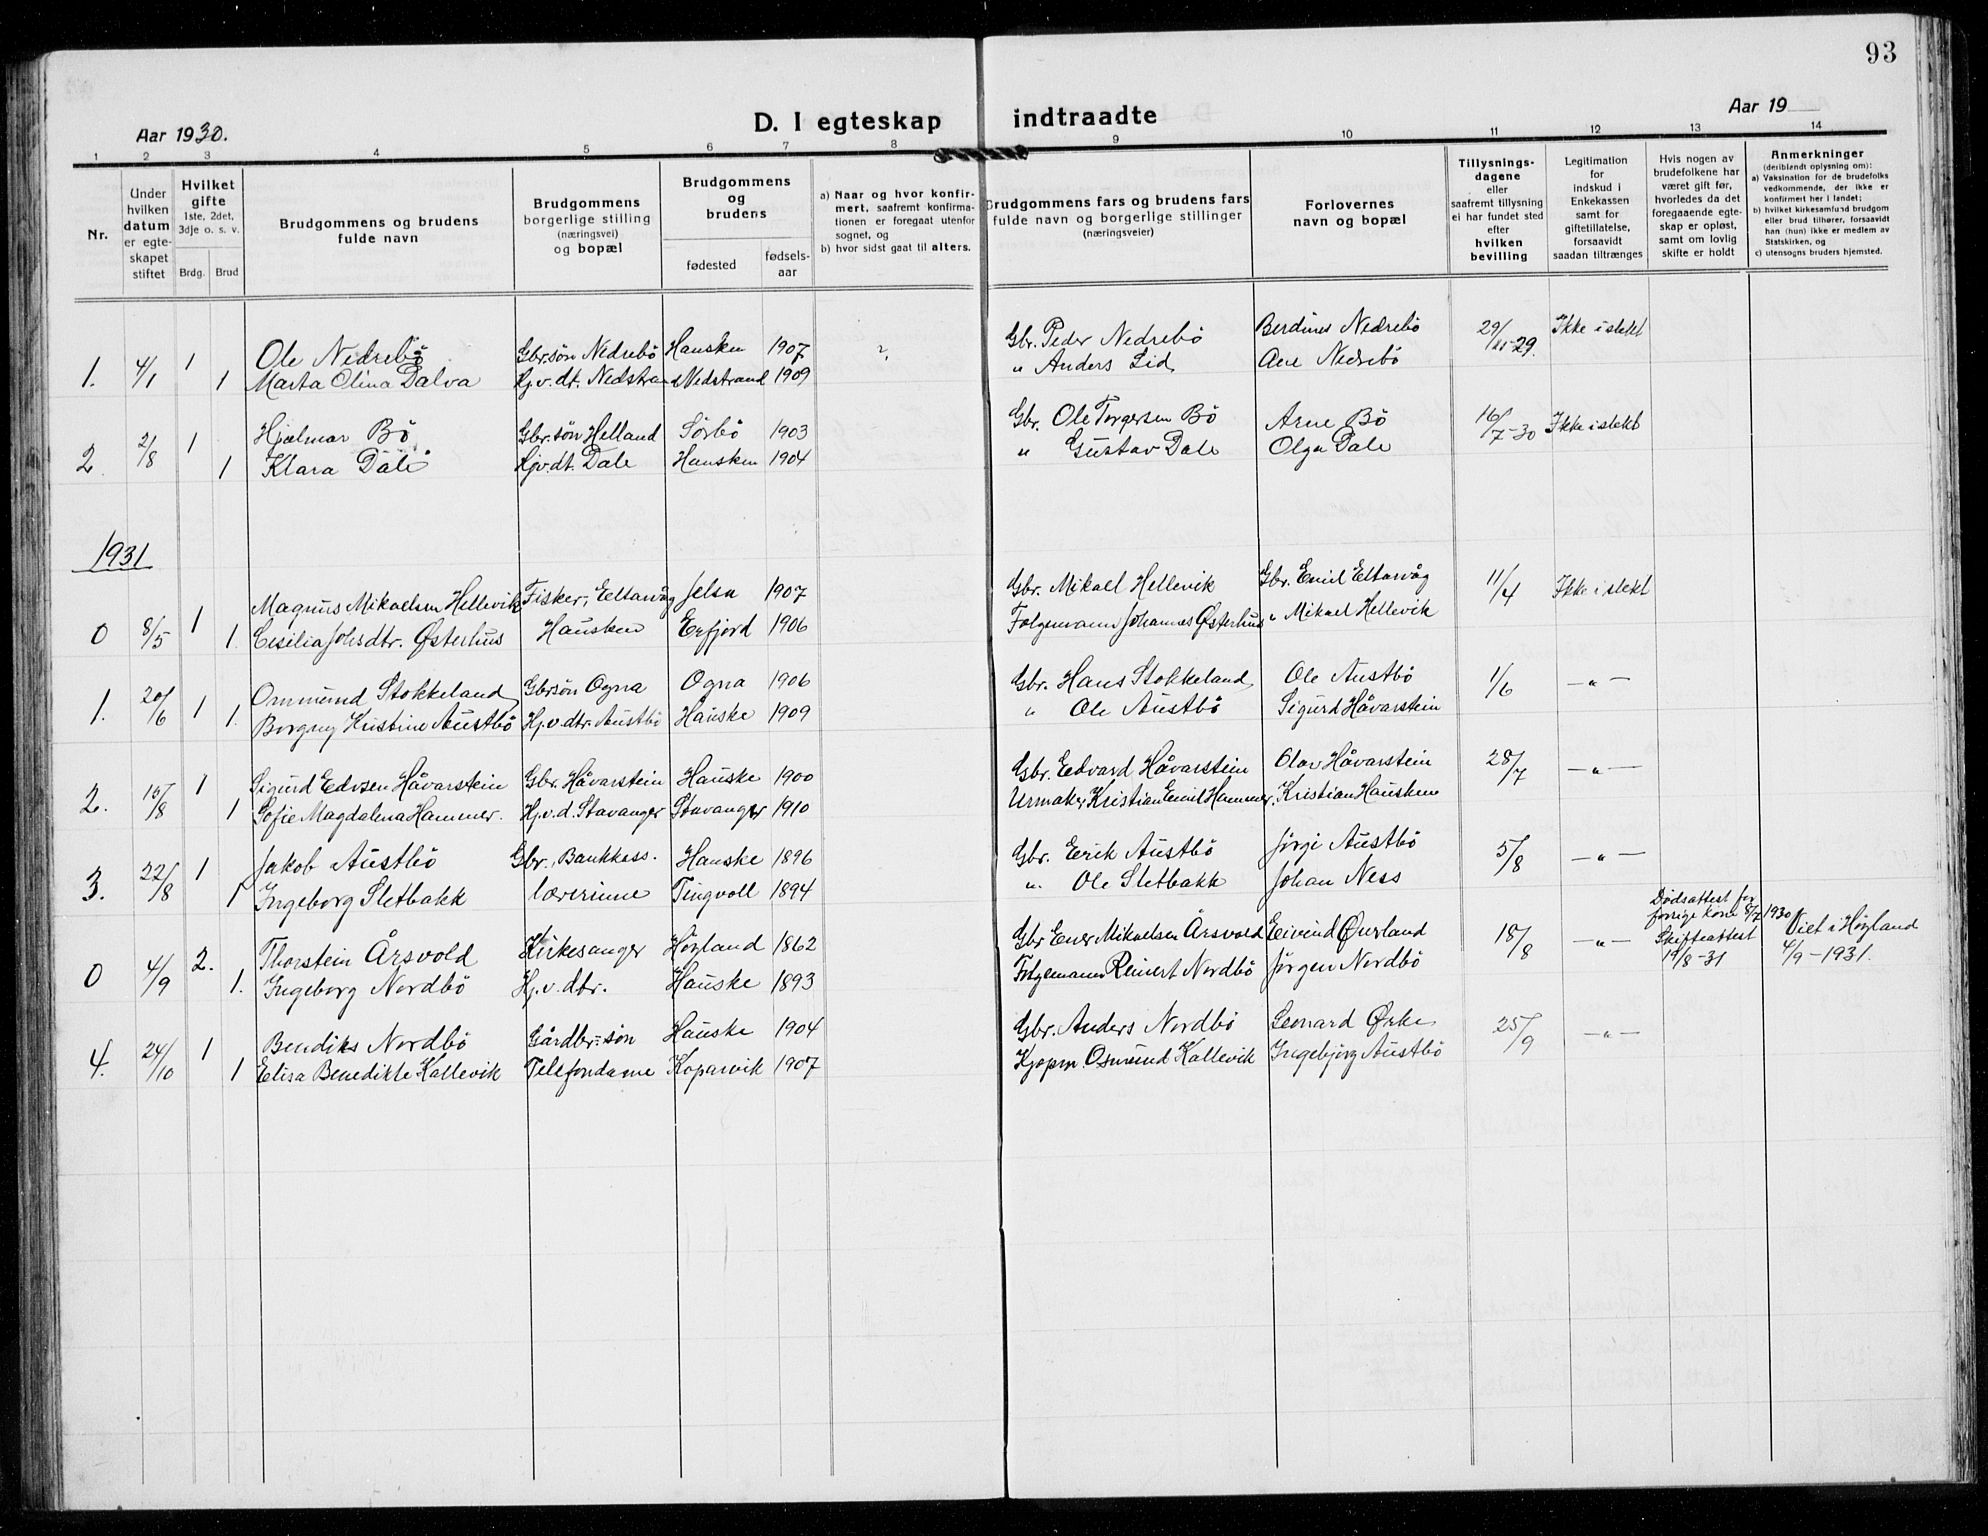 93
Aar 1930.
D. I egteskap indtraadte
Aar 19
1 2 3 4 5 6 7 8 9 10 11 12 13 14
Nr.
Under hvilken datum er egteskapet stiftet
Hvilket gifte 1ste, 2det, 3dje o. s. v.
Brdg. Brud
Brudgommens og brudens fulde navn
Brudgommens borgerlige stilling (næringsvei) og bopæl
Brudgommens og brudens
fødested
fødselsaar
a) Naar og hvor konfirmert, saafremt konfirmationen er foregaat utenfor sognet, og
b) hvor sidst gaat til alters.
Brudgommens fars og brudens fars fulde navn og borgerlige stillinger (næringsveier)
Forlovernes navn og bopæl
Tillysningsdagene eller saafremt tillysning ei har fundet sted efter hvilken bevilling
Legitimation for indskud i Enkekassen samt for giftetillatelse, forsaavidt saadan tiltrænges
Hvis nogen av brudefolkene har været gift før, hvorledes da det foregaaende egteskap er opløst, samt om lovlig skifte er holdt
Anmerkninger (deriblendt oplysning om):
a) Vaksination for de brudefolks vedkommende, der ikke er konfirmert her i landet;
b) hvilket kirkesamfund brudgom eller brud tilhører, forsaavidt han (hun) ikke er medlem av Statskirken, og
c) utensogns bruders hjemsted.
1. 4/1 1 Ole Nedrebö Gbr.sön Nedrebö Hausken 1907 Gbr. Peder Nedrebö Berdines Nedrebö 29/11-29. Ikke i slekt
1 Marta Olina Dalva Hj.v.dt. Nedstrand Nedstrand 1909 " Anders Lid Ane Nedrebö
2. 2/8 1 Hjalmar Bö Gbr.sön Helland Sörbö 1903 Gbr. Ole Torgersen Bö Arne Bö 16/7-30 Ikke i slekt
1 Klara Dale Hjv.dt. Dale Hausken 1904 " Gustav Dale Olga Dale
1931
0 8/5 1 Magnus Mikaelsen Hellevik Fisker, Eltarvåg Jelsa 1907 Gbr. Mikael Hellevik Gbr. Emil Eltarvåg 11/4 Ikke i slekt
1. Cesilia Johsdtr. Østerhus Hausken Erfjord 1906 Folgemann Johannes Østerhus " Mikael Hellevik
1. 20/6 1 Ommund Stokkeland Gbrsön Ogna Ogna 1906 Gbr. Hans Stokkeland Ole Austbö 1/6 — " —
1. Borgny Kristine Austbö Hj.v.dtr. Austbö Hauske 1909 " Ole Austbö Sigurd Håvarstein
2. 16/8 1 Sigurd Edvsen Håvarstein Gbr. Håvarstein Hauske 1900 Gbr. Edvard Håvarstein Olav Håvarstein 28/7 — " —
1 Sofie Magdalena Hammer. Hj.v.d. Stavanger Stavanger 1910 Urmaker Kristian Emil Hammer, Kristian Hausken
3. 22/8 1 Jakob Austbö Gbr. Bankkass. Hauske 1896 Gbr. Eerik Austbö Jörgi Austbö 5/8 — " —
1 Ingeborg Sletbakk lærerinne Tingvoll 1894 " Ole Sletbakk Johan Ness
0 4/9 2. Thorstein Årsvold Kirkesanger Högland 1862 Gbr Ener Mikaelsen Årsvold Eivind Øverland 18/8 — " — Dødsattest for forrige kone 8/7 1930 Skifteattest 19/8-31 Viet i Högland 4/9-1931.
1. Ingeborg Nordbö Hj.v.dtr. Hauske 1893 Folgemann Reinert Nordbö Jörgen Nordbö
4. 24/10 1 Bendiks Nordbö Gårdbr.-sön Hauske 1904 Gbr. Anders Nordbö Leonard Ørke 25/9 — " —
1 Elisa Benedikte Kallevik Telefondame Kopervik 1907 Kjøpm. Osmund Kallevik Ingebjörg Austbö